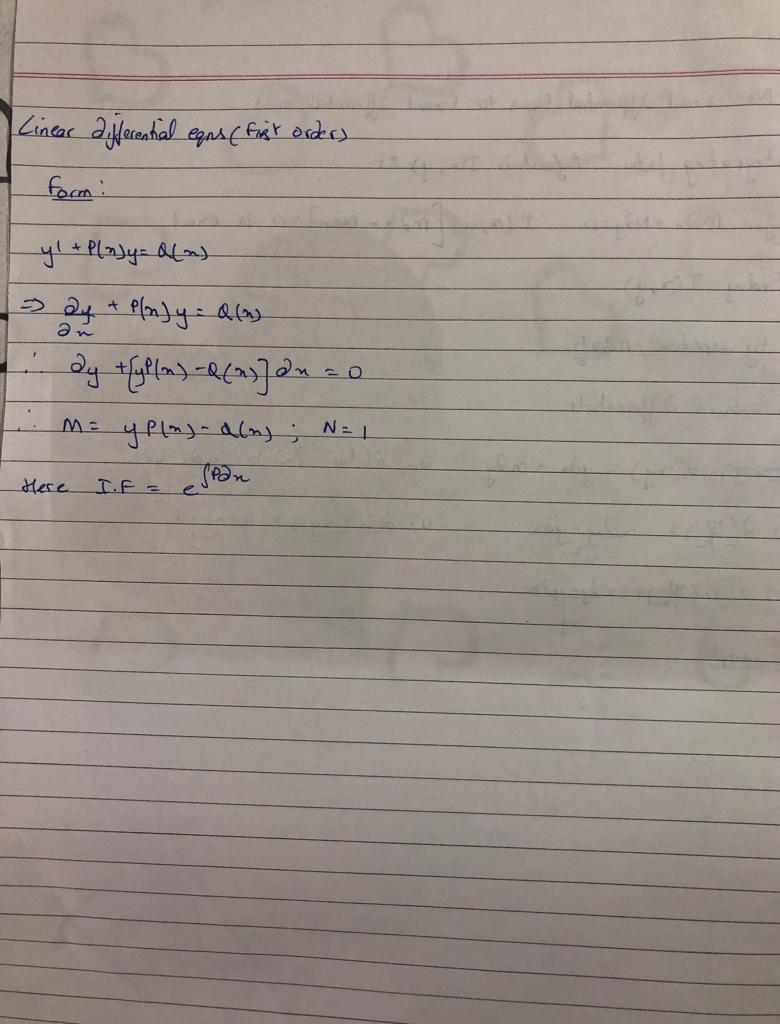 Linear differential eqns (first order)
Form:
y' + P(x)y = Q(x)
⇒ ∂y/∂x + P(x)y = Q(x)
∴ ∂y + [yP(x) - Q(x)] ∂x = 0
∴ M = yP(x) - Q(x) ; N = 1
Here I.F = e^∫P∂x